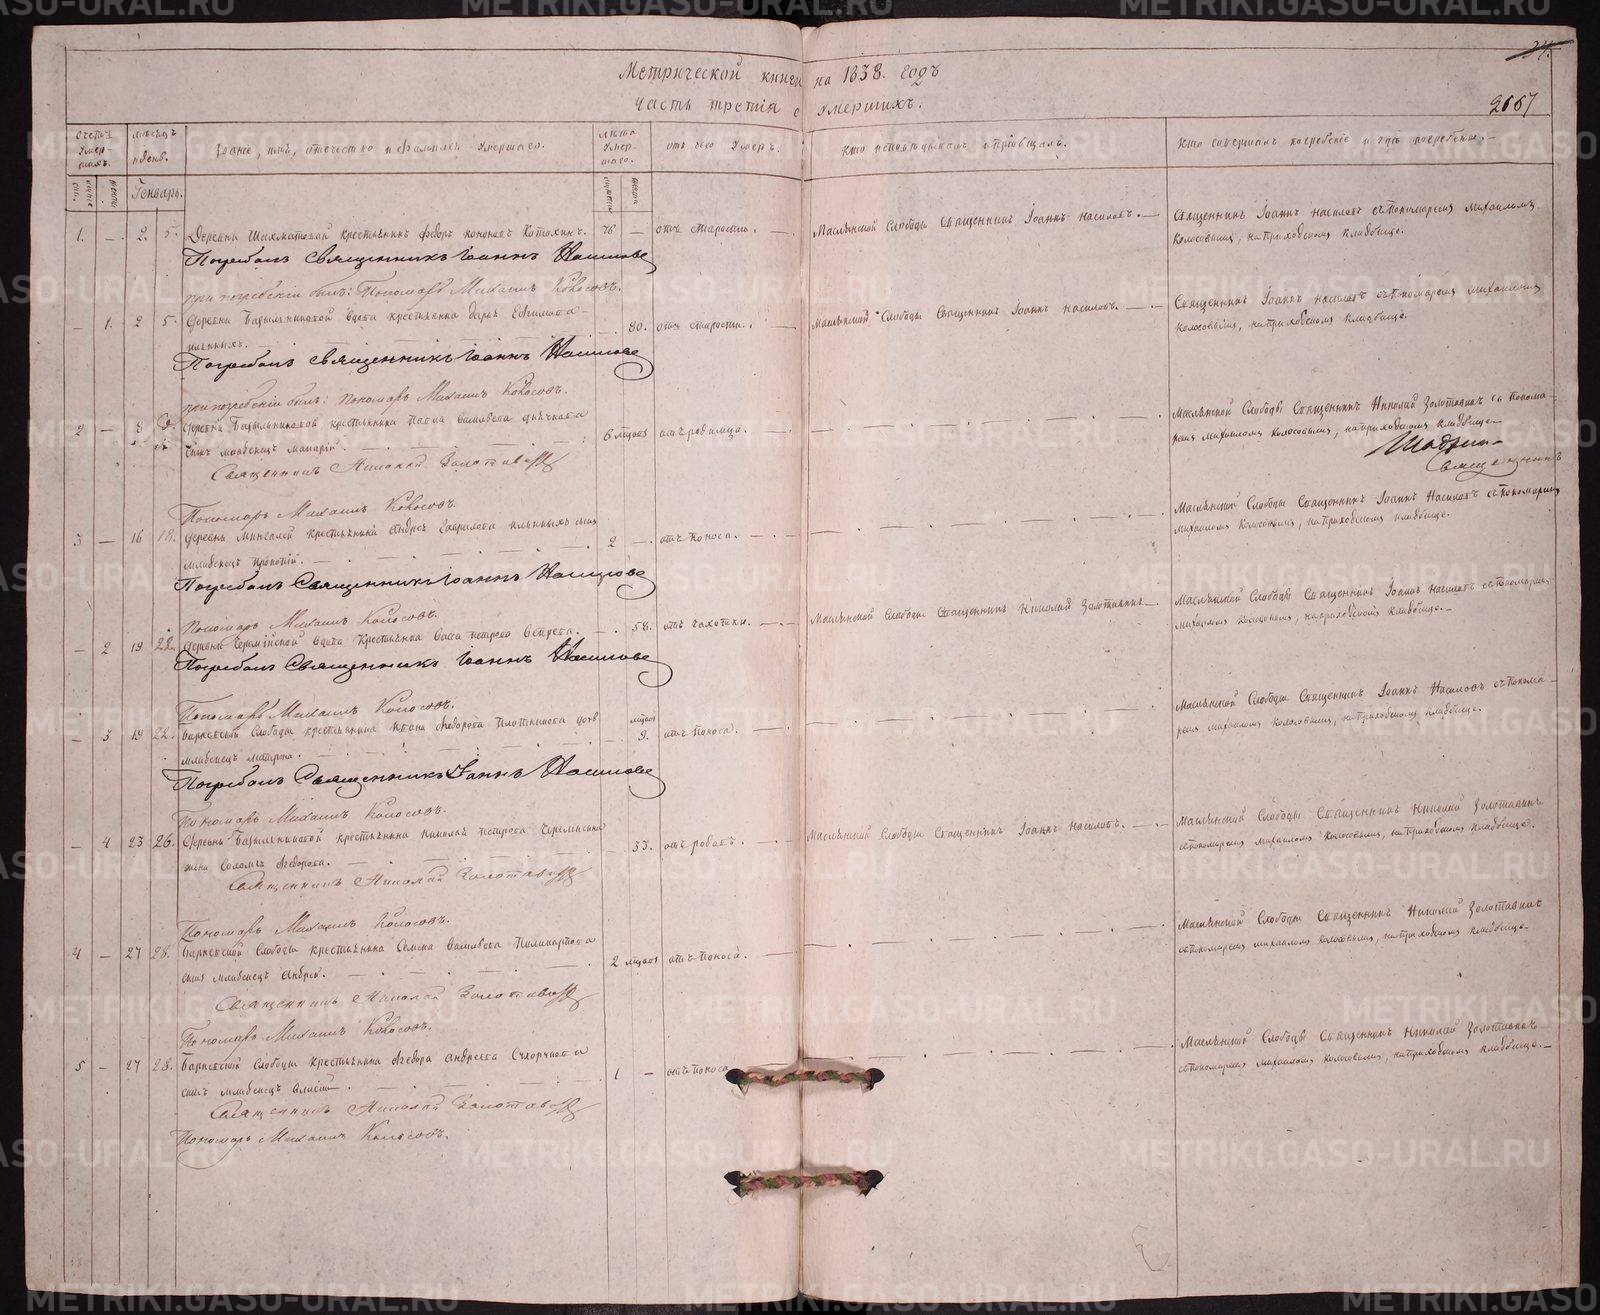 34.
Метрической книги на 1838. годъ
Часть третія о умершихъ.
2667
Счетъ умершихъ.
мѣсяцъ и день.
Званіе, имя, отечество и фамилія умершаго.
лѣта умершаго.
отъ чего умеръ.
кто исповѣдывалъ и пріобщалъ.
кто совершалъ погребеніе и гдѣ погребены.
Генварь.
1. — 2. 5. Деревни Шахматовой крестьянинъ Федоръ 76 — отъ старости. — Маслянской Слободы Священникъ Іоаннъ Насиловъ. — Священникъ Іоаннъ Насиловъ съ пономаремъ Михаиломъ
Колосовымъ, на приходскомъ кладбище.
Погребалъ Священникъ Іоаннъ Насиловъ
при погребеніи былъ: Пономарь Михаилъ Колосовъ.
— 1. 2 5. Деревни вдова крестьянка Дарья — 80. отъ старости. — Маслянской Слободы Священникъ Іоаннъ Насиловъ. — Священникъ Іоаннъ Насиловъ съ пономаремъ Михаиломъ
Колосовымъ, на приходскомъ кладбище.
Погребалъ Священникъ Іоаннъ Насиловъ
при погребеніи былъ: Пономарь Михаилъ Колосовъ.
2 — 8 Деревни крестьянина Павла Васильева 6 мѣсяцов отъ родимца. — Маслянской Слободы Священникъ Николай Золотавинъ съ понома-
ремъ Михаиломъ Колосовымъ, на приходскомъ кладбище.
сынъ младенецъ Макарій.
Священникъ Николай Золотавинъ
Священникъ
Пономарь Михаилъ Колосовъ.
3 — 16 18. Деревни Мингалей крестьянина Андрея Гаврилова Ильиныхъ сынъ 2 — отъ поноса. — Маслянской Слободы Священникъ Іоаннъ Насиловъ съ пономаремъ
Михаиломъ Колосовымъ, на приходскомъ кладбище.
младенецъ Прокопій.
Погребалъ Священникъ Іоаннъ Насиловъ
Пономарь Михаилъ Колосовъ.
— 2 19 22. Деревни вдова крестьянка Васса Петрова — 58. отъ чахотки. — Маслянской Слободы Священникъ Николай Золотавинъ — Маслянской Слободы Священникъ Іоаннъ Насиловъ съ пономаремъ
Михаиломъ Колосовымъ, на приходскомъ кладбище. —
Погребалъ Священникъ Іоаннъ Насиловъ
Пономарь Михаилъ Колосовъ.
— 3 19 22. Барневской Слободы крестьянина Ивана Федорова Плотникова дочь мѣсяцов 9. отъ поноса. — Маслянской Слободы Священникъ Іоаннъ Насиловъ съ понома-
ремъ Михаиломъ Колосовымъ, на приходскомъ кладбище.
младенецъ Матрона.
Погребалъ Священникъ Іоаннъ Насиловъ
Пономарь Михаилъ Колосовъ.
— 4 23 26. Деревни крестьянина Николая Петрова — 33. отъ родовъ. — Маслянской Слободы Священникъ Іоаннъ Насиловъ. — Маслянской Слободы Священникъ Николай Золотавинъ
съ пономаремъ Михаиломъ Колосовымъ, на приходскомъ кладбище.
жена Федорова.
Священникъ Николай Золотавинъ
Пономарь Михаилъ Колосовъ.
4 — 27 28. Барневской Слободы крестьянина Семена Васильева Поликарпова 2 мѣсяцов отъ поноса. — Маслянской Слободы Священникъ Николай Золотавинъ
съ пономаремъ Михаиломъ Колосовымъ, на приходскомъ кладбище.
сынъ младенецъ Андрей.
Священникъ Николай Золотавинъ
Пономарь Михаилъ Колосовъ.
5 — 27 28. Барневской Слободы крестьянина Федора Андреева 1 — отъ поноса Маслянской Слободы Священникъ Николай Золотавинъ
съ пономаремъ Михаиломъ Колосовымъ, на приходскомъ кладбище. —
сынъ младенецъ
Священникъ Николай Золотавинъ
Пономарь Михаилъ Колосовъ.
METRIKI.GASO-URAL.RU